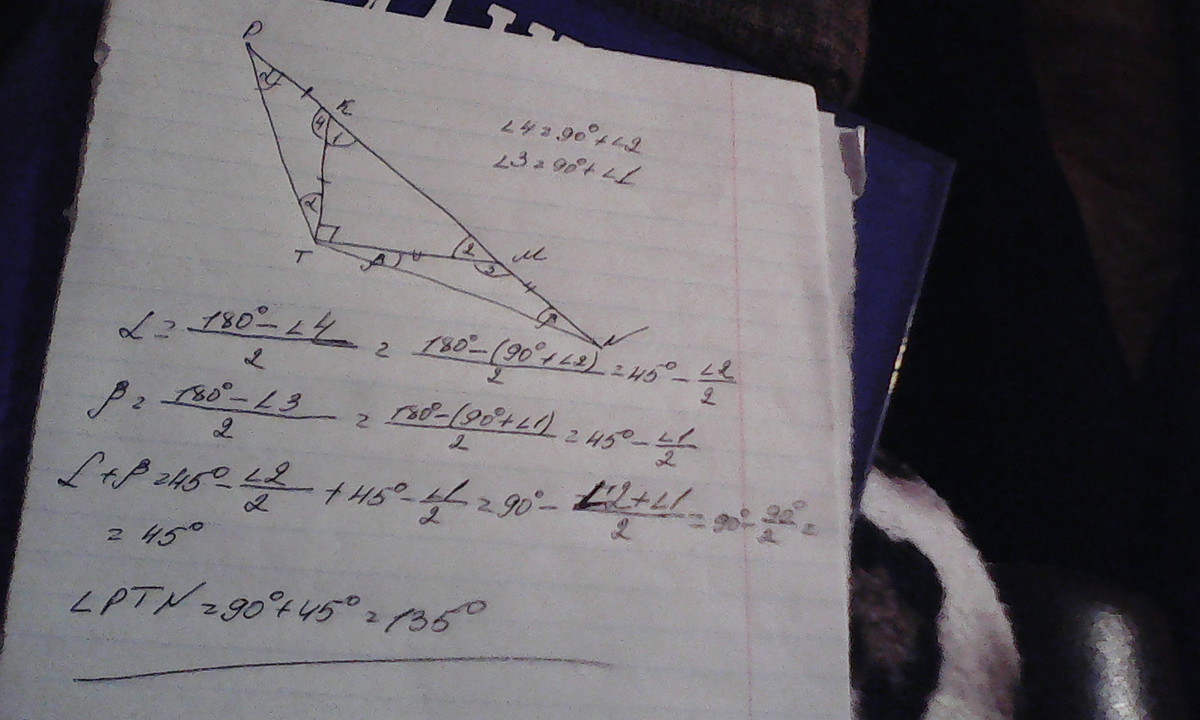 P
α
K
4 1
∠4=90°+∠2
∠3=90°+∠1
α
T
β
2
3
M
β
N
α = (180°-∠4)/2 = (180°-(90°+∠2))/2 = 45° - ∠2/2
β = (180°-∠3)/2 = (180°-(90°+∠1))/2 = 45° - ∠1/2
α+β=45° - ∠2/2 + 45° - ∠1/2 = 90° - (∠2+∠1)/2 = 90° - 90°/2 =
= 45°
∠PTN=90°+45°=135°